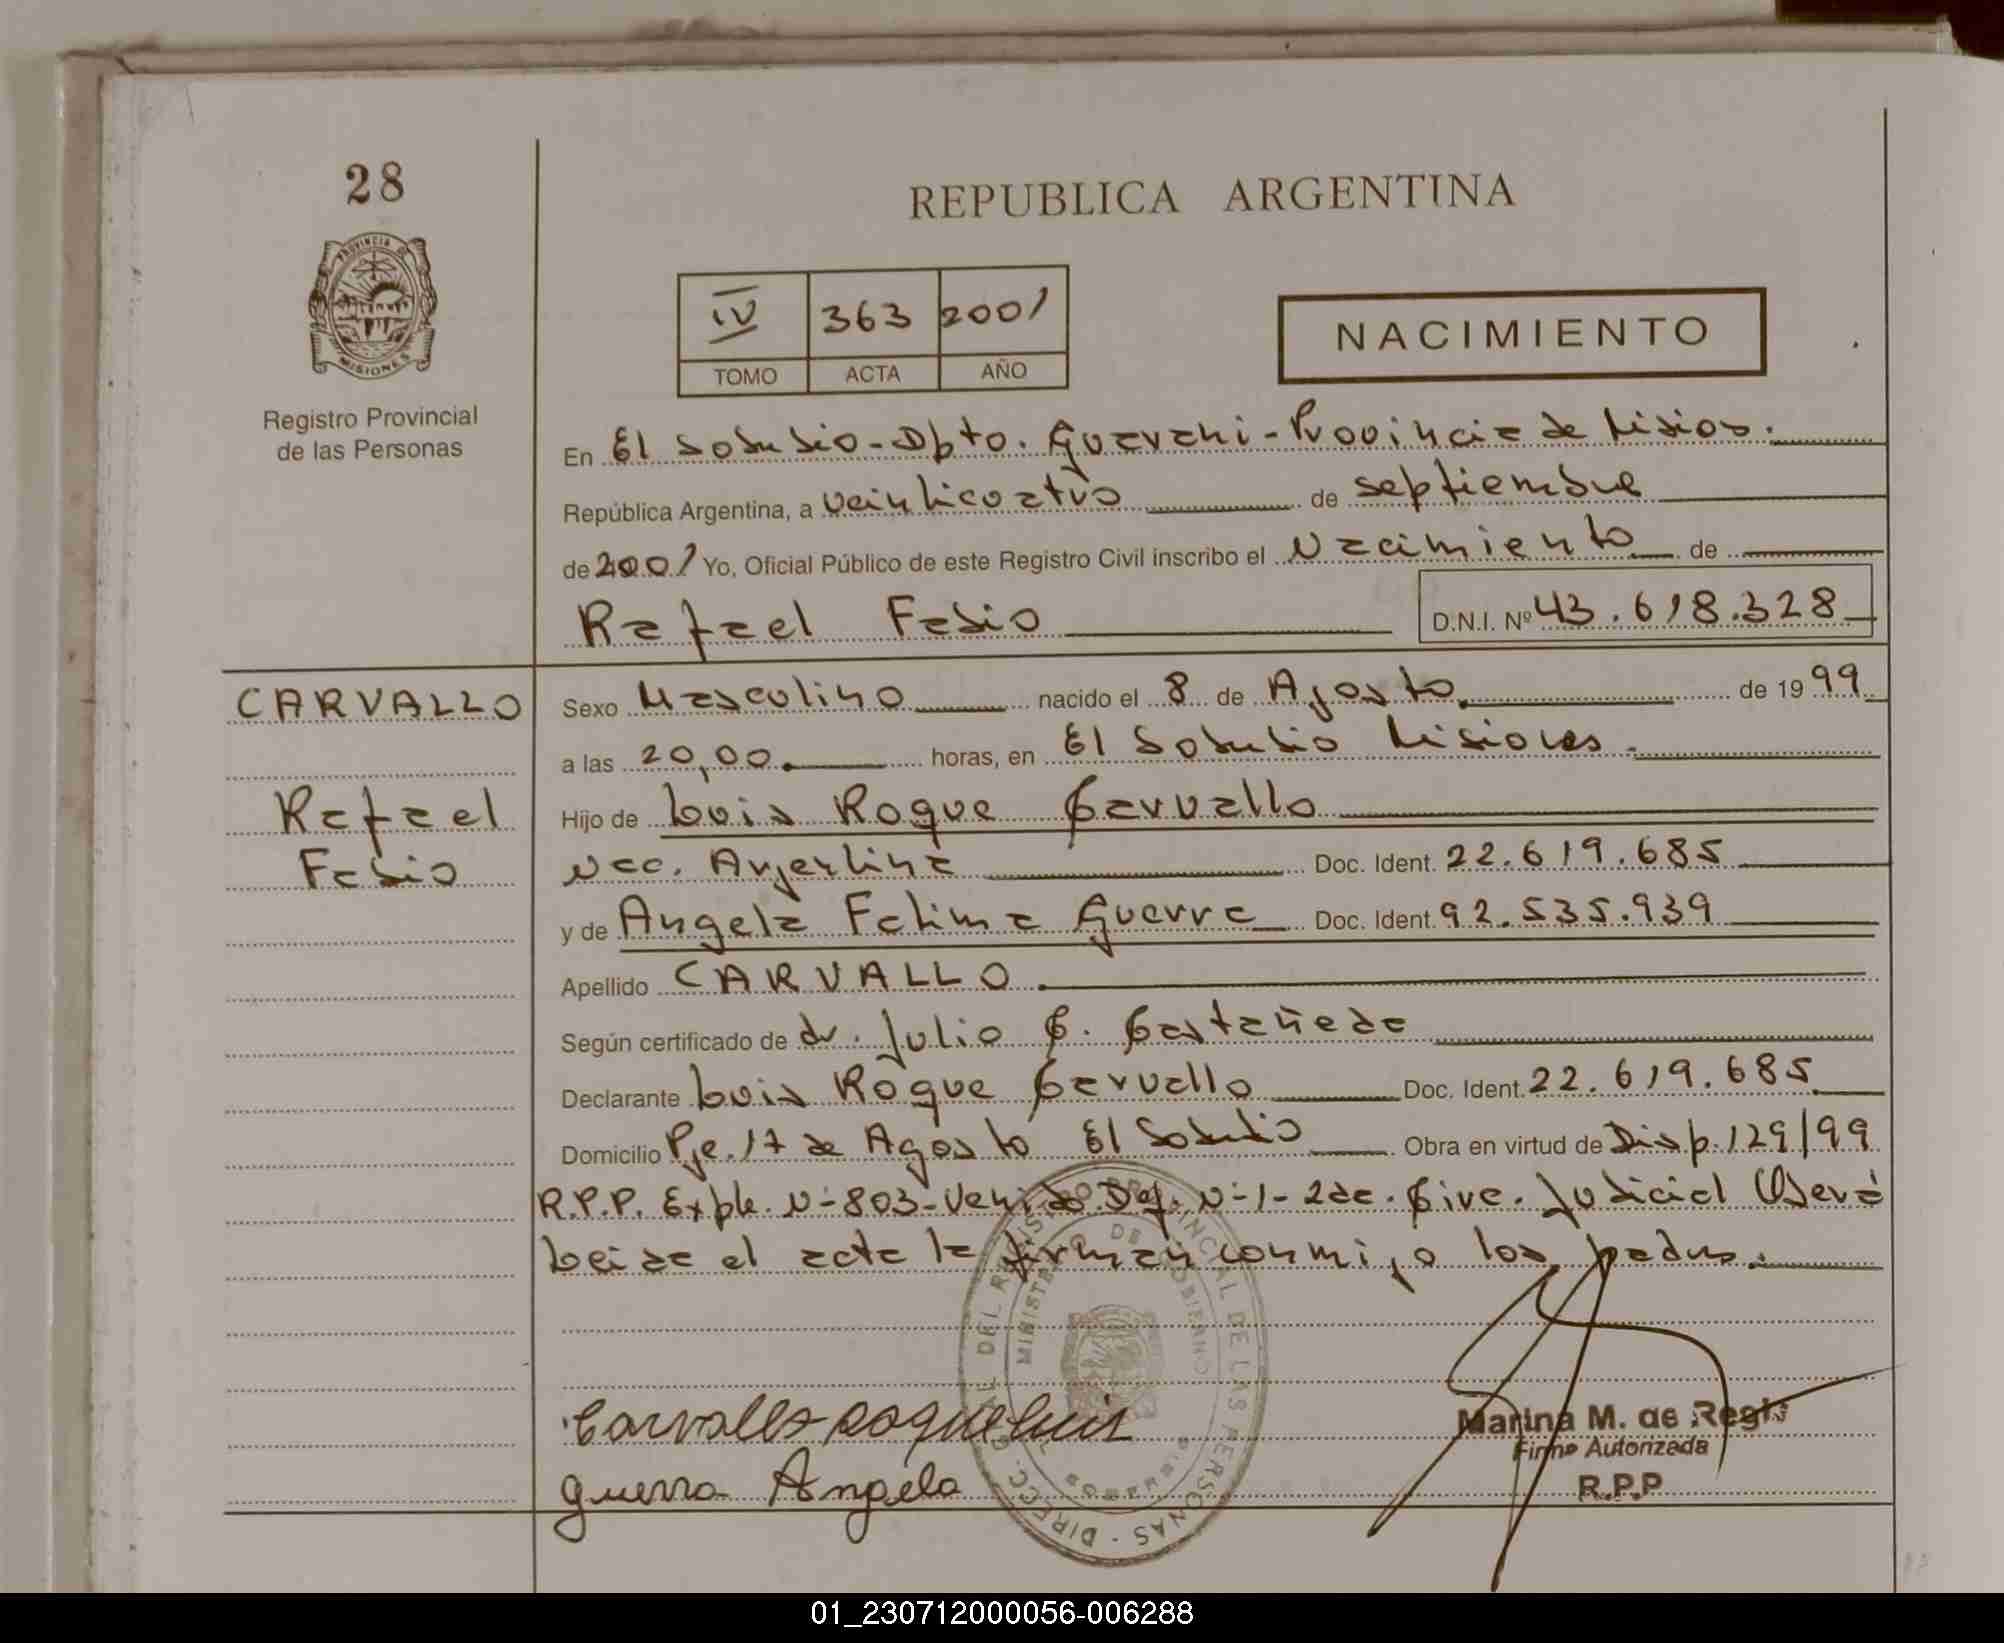 28
REPUBLICA ARGENTINA
PROVINCIA DE
MISIONES
Registro Provincial
de las Personas
IV 363 2001
TOMO ACTA AÑO
NACIMIENTO
En El Soberbio - Dpto. Guarani - Provincia de Misiones.
República Argentina, a veinticuatro de septiembre
de 2001 Yo, Oficial Público de este Registro Civil inscribo el Nacimiento de
Rafael Fabio D.N.I. Nº 43.618.328
CARVALLO
Rafael
Fabio
Sexo Masculino nacido el 8 de Agosto de 1999
a las 20,00 horas, en El Soberbio Misiones.
Hijo de Luis Roque Carvallo
Nac. Argentina Doc. Ident. 22.619.685
y de Angela Fatima Guerra Doc. Ident. 92.535.939
Apellido CARVALLO
Según certificado de dr. Julio C. Castañeda
Declarante Luis Roque Carvallo Doc. Ident. 22.619.685
Domicilio Pje. 17 de Agosto El Soberbio Obra en virtud de Disp. 129/99
R.P.P. Expte. Nº 803 - Def. Nº 1 - 2da. Circ. Judicial Oberá
Leida el acta la firman conmigo los padres.
Carvallo Roque Luis
Guerra Angela
Marina M. de Regis
Firma Autorizada
R.P.P
DIRECC. GRAL DEL REGISTRO PROVINCIAL DE LAS PERSONAS
MINISTERIO DE GOBIERNO
01_230712000056-006288